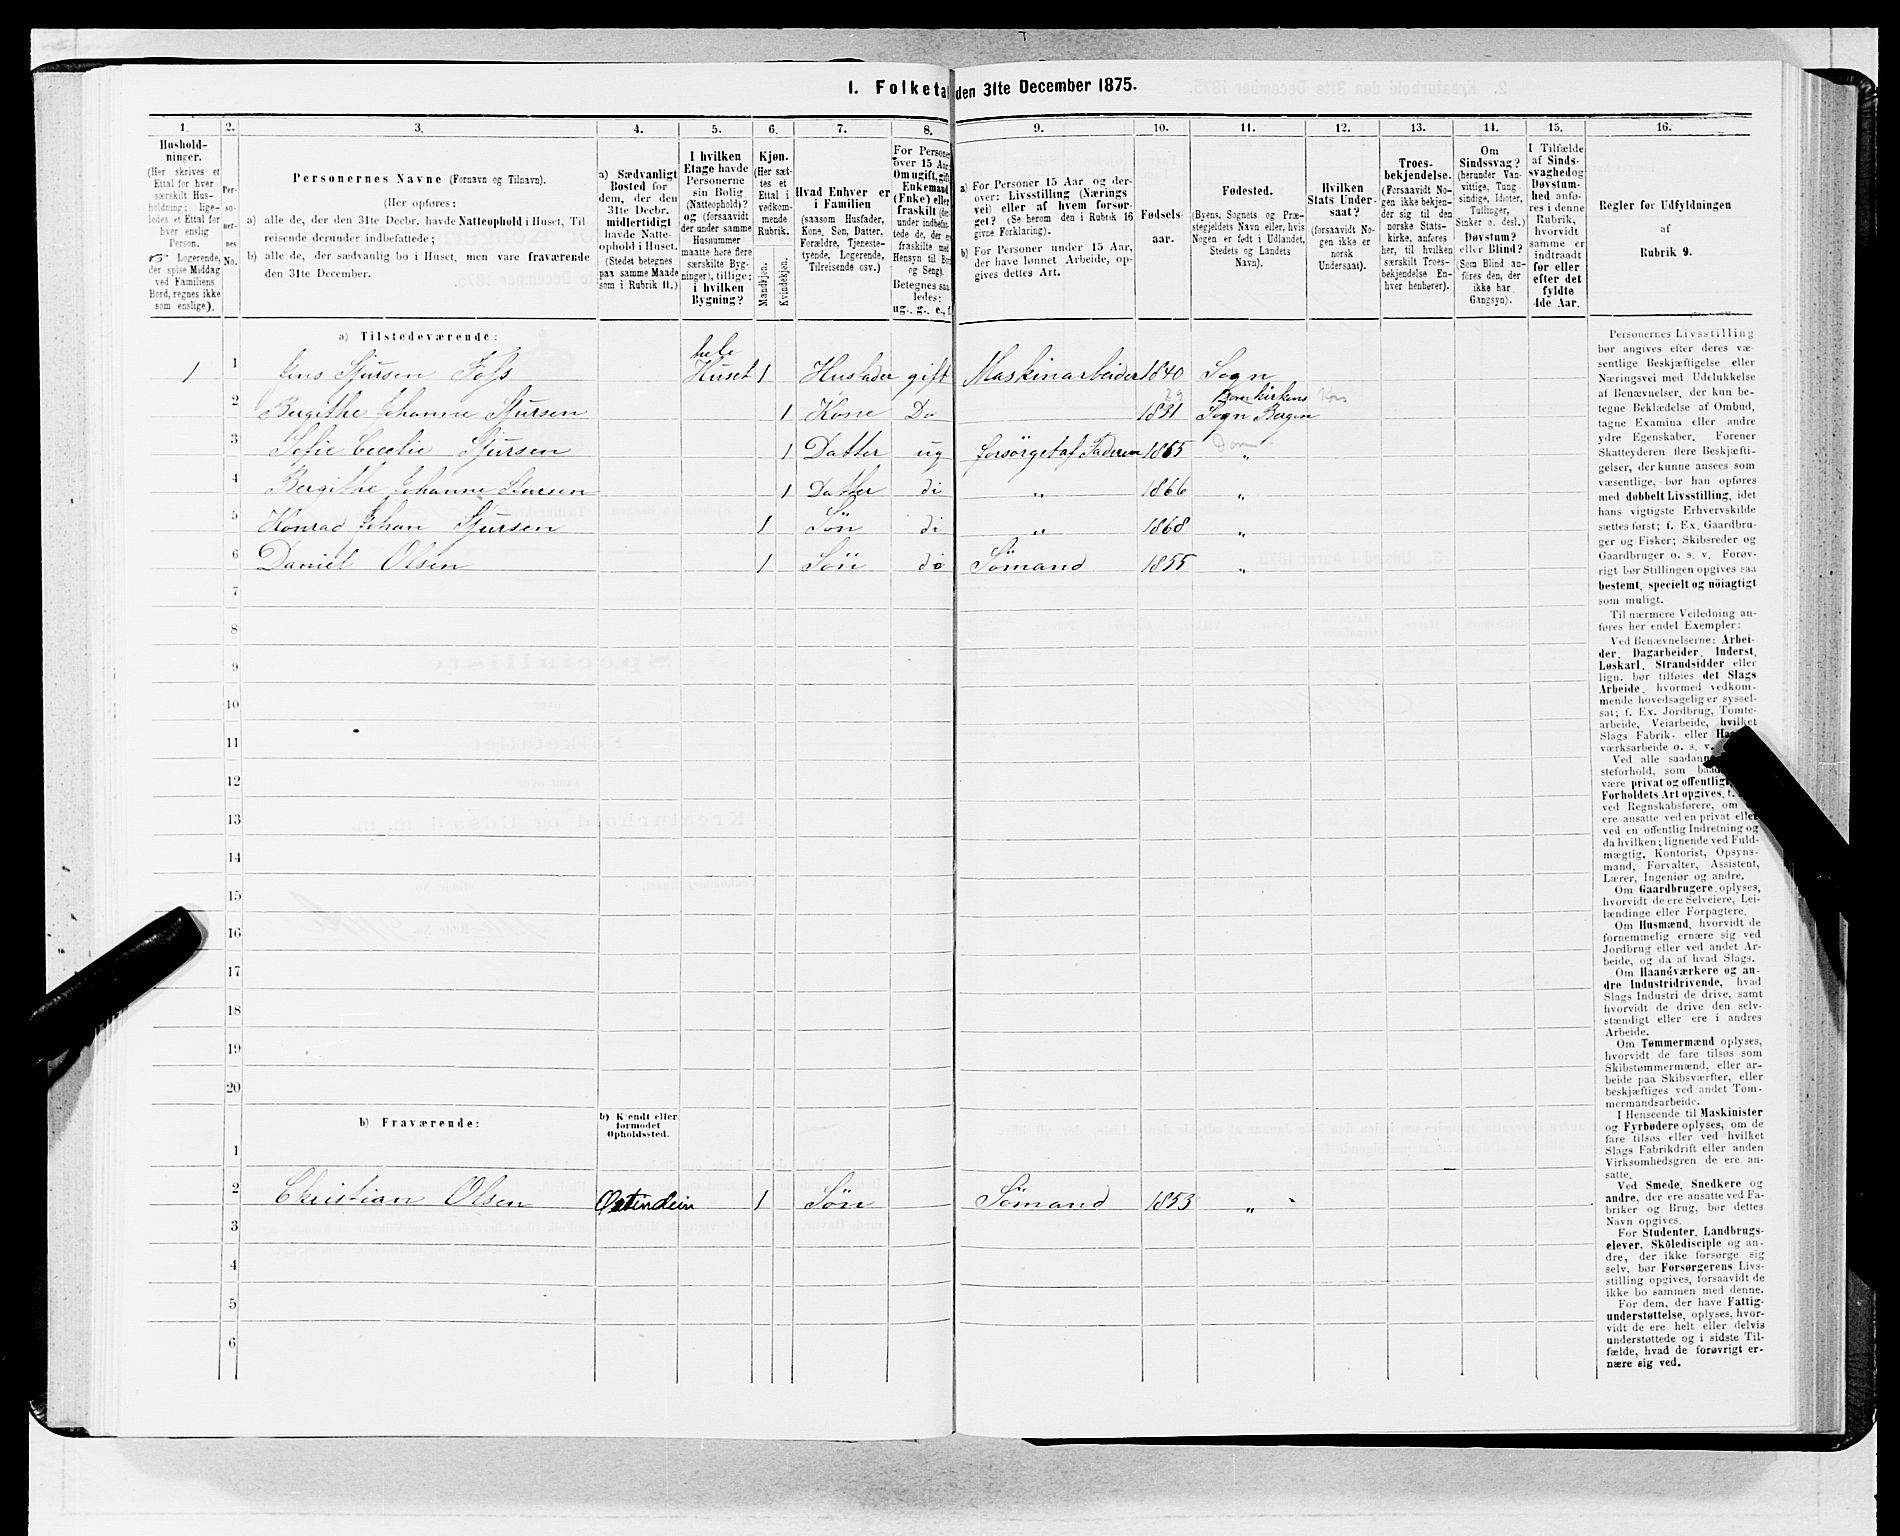 1. Folketal den 31te December 1875.
1. 2. 3. 4. 5. 6. 7. 8. 9. 10. 11. 12. 13. 14. 15. 16.
Hushold-
ninger.
(Her skrives et
Ettal for hver
særskilt Hus-
holdning; lige-
ledes et Ettal for
hver enslig
Person.
☞ Logerende,
der spise Middag
ved Familiens
Bord, regnes ikke
som enslige).
Per-
so-
ner-
nes
No.
Personernes Navne (Fornavn og Tilnavn).
(Her opføres:
a) alle de, der den 31te Decbr. havde Natteophold i Huset, Til-
reisende derunder indbefattede;
b) alle de, der sædvanlig bo i Huset, men vare fraværende
den 31te December.
a) Sædvanligt
Bosted for
dem, der den
31te Decbr.
midlertidigt
havde Natte-
ophold i Huset.
(Stedet betegnes
paa samme Maade
som i Rubrik 11.)
I hvilken
Etage havde
Personerne
sin Bolig
(Natteophold)?
og (forsaavidt
der under samme
Husnummer
maatte høre flere
særskilte Byg-
ninger), tillige:
i hvilken
Bygning?
Kjøn.
(Her sæt-
tes et
Ettal i
vedkom-
mende
Rubrik.
Mandkjøn.
Kvindekjøn.
Hvad Enhver er
i Familien
(saasom Husfader,
Kone, Søn, Datter,
Forældre, Tjeneste-
tyende, Logerende,
Tilreisende osv.)
For Personer
over 15 Aar:
Om ugift, gift,
Enkemand
(Enke) eller
fraskilt (der-
under indbefat-
tede de, der ere
fraskilte med
Hensyn til Bord
og Seng).
Betegnes saa-
ledes:
ug., g., e., f.
a) For Personer 15 Aar og der-
over: Livsstilling (Nærings-
vei) eller af hvem forsør-
get? (Se herom den i Rubrik 16
givne Forklaring).
b) For Personer under 15 Aar,
der have lønnet Arbeide, op-
gives dettes Art.
Fødsels-
aar.
Fødested.
(Byens, Sognets og Præ-
stegjeldets Navn eller, hvis
Nogen er født i Udlandet,
Stedets og Landets
Navn).
Hvilken
Stats Under-
saat?
(forsaavidt No-
gen ikke er
norsk
Undersaat).
Troes-
bekjendelse.
(Forsaavidt No-
gen ikke bekjen-
der sig til den
norske Stats-
kirke, anføres
her, til hvilken
særskilt Troes-
bekjendelse En-
hver henhører).
Om
Sindssvag?
(herunder Van-
vittige, Tung-
sindige, Idioter,
Tullinger,
Sinker o. desl.)
Døvstum?
eller Blind?
(Som Blind an-
føres den, der
ikke har
Gangsyn).
I Tilfælde
af Sinds-
svaghed og
Døvstum-
hed anfø-
res i denne
Rubrik,
hvorvidt
samme er
indtraadt
før eller
efter det
fyldte
4de Aar.
Regler for Udfyldningen
af
Rubrik 9.
a) Tilstedeværende:
1 1 Jens Sjursen Foss hele Huset 1 Husfader gift Maskinarbeider 1840 Sogn
2 Bergithe Johanne Sjursen 1 Kone Do 1831 29 Domkirkens Sogn Bergen
3 Sofie Cecelie Sjursen 1 Datter ug forsørget af Faderen 1865 Dom „
4 Bergithe Johanne Sjursen 1 Datter di „ 1866 „
5 Konrad Johan Sjursen 1 Søn di „ 1868 „
6 Daniel Olsen 1 Søn do Sömand 1855 „
7
8
9
10
11
12
13
14
15
16
17
18
19
20
b) Fraværende:
b) Kjendt eller
formodet
Opholdssted.
1
2 Christian Olsen Ostindein 1 Søn Sömand 1853 „
3
4
5
6
Personernes Livsstilling
bør angives efter deres væ-
sentlige Beskjæftigelse eller
Næringsvei med Udelukkelse
af Benævnelser, der kun be-
tegne Beklædelse af Ombud,
tagne Examina eller andre
ydre Egenskaber. Forener
Skatteyderen flere Beskjæfti-
gelser, der kunne ansees som
væsentlige, bør han opføres
med dobbelt Livsstilling, idet
hans vigtigste Erhvervskilde
sættes først; f. Ex. Gaardbru-
ger og Fisker; Skibsreder og
Gaardbruger o. s. v. Forøv-
rigt bør Stillingen opgives saa
bestemt, specielt og nöiagtigt
som muligt.
Til nærmere Veiledning an-
føres her endel Exempler:
Ved Benævnelserne: Arbei-
der, Dagarbeider, Inderst,
Løskarl, Strandsidder eller
lign. bør tilføies det Slags
Arbeide, hvormed vedkom-
mende hovedsagelig er syssel-
sat; f. Ex. Jordbrug, Tomte-
arbeide, Veiarbeide, hvilket
Slags Fabrik- eller
værksarbeide o. s. v.
Ved alle
steforhold, som
være privat og
Forholdets Art opgives,
ved Regnskabsførere, om
ere ansatte ved en privat eller
ved en offentlig Indretning og
da hvilken; lignende ved Fuld-
mægtig, Kontorist, Opsyns-
mand, Forvalter, Assistent,
Lærer, Ingeniør og andre.
Om Gaardbrugere oplyses,
hvorvidt de ere Selveiere, Lei-
lændinge eller Forpagtere.
Om Husmænd, hvorvidt de
fornemmelig ernære sig ved
Jordbrug eller ved andet Ar-
beide, og da af hvad Slags.
Om Haandværkere og an-
dre Industridrivende, hvad
Slags Industri de drive, samt
hvorvidt de drive den selv-
stændigt eller ere i andres
Arbeide.
Om Tømmermænd oplyses,
hvorvidt de fare tilsøs som
Skibstømmermænd, eller ar-
beide paa Skibsværfter, eller
beskjæftiges ved andet Tøm-
mermandsarbeide.
I Henseende til Maskinister
og Fyrbødere oplyses, om de
fare tilsøs eller ved hvilket
Slags Fabrikdrift eller anden
Virksomhedsgren de ere an-
satte.
Ved Smede, Snedkere og
andre, der ere ansatte ved Fa-
briker og Brug, bør dettes
Navn opgives.
For Studenter, Landbrugs-
elever, Skoledisciple og an-
dre, der ikke forsørge sig
selv, bør Forsørgerens Livs-
stilling opgives, forsaavidt de
ikke bo sammen med denne.
For dem, der have Fattig-
understøttelse, oplyses, hvor-
vidt de ere helt eller delvis
understøttede og i sidste Til-
fælde, hvad de forøvrigt er-
nære sig ved.